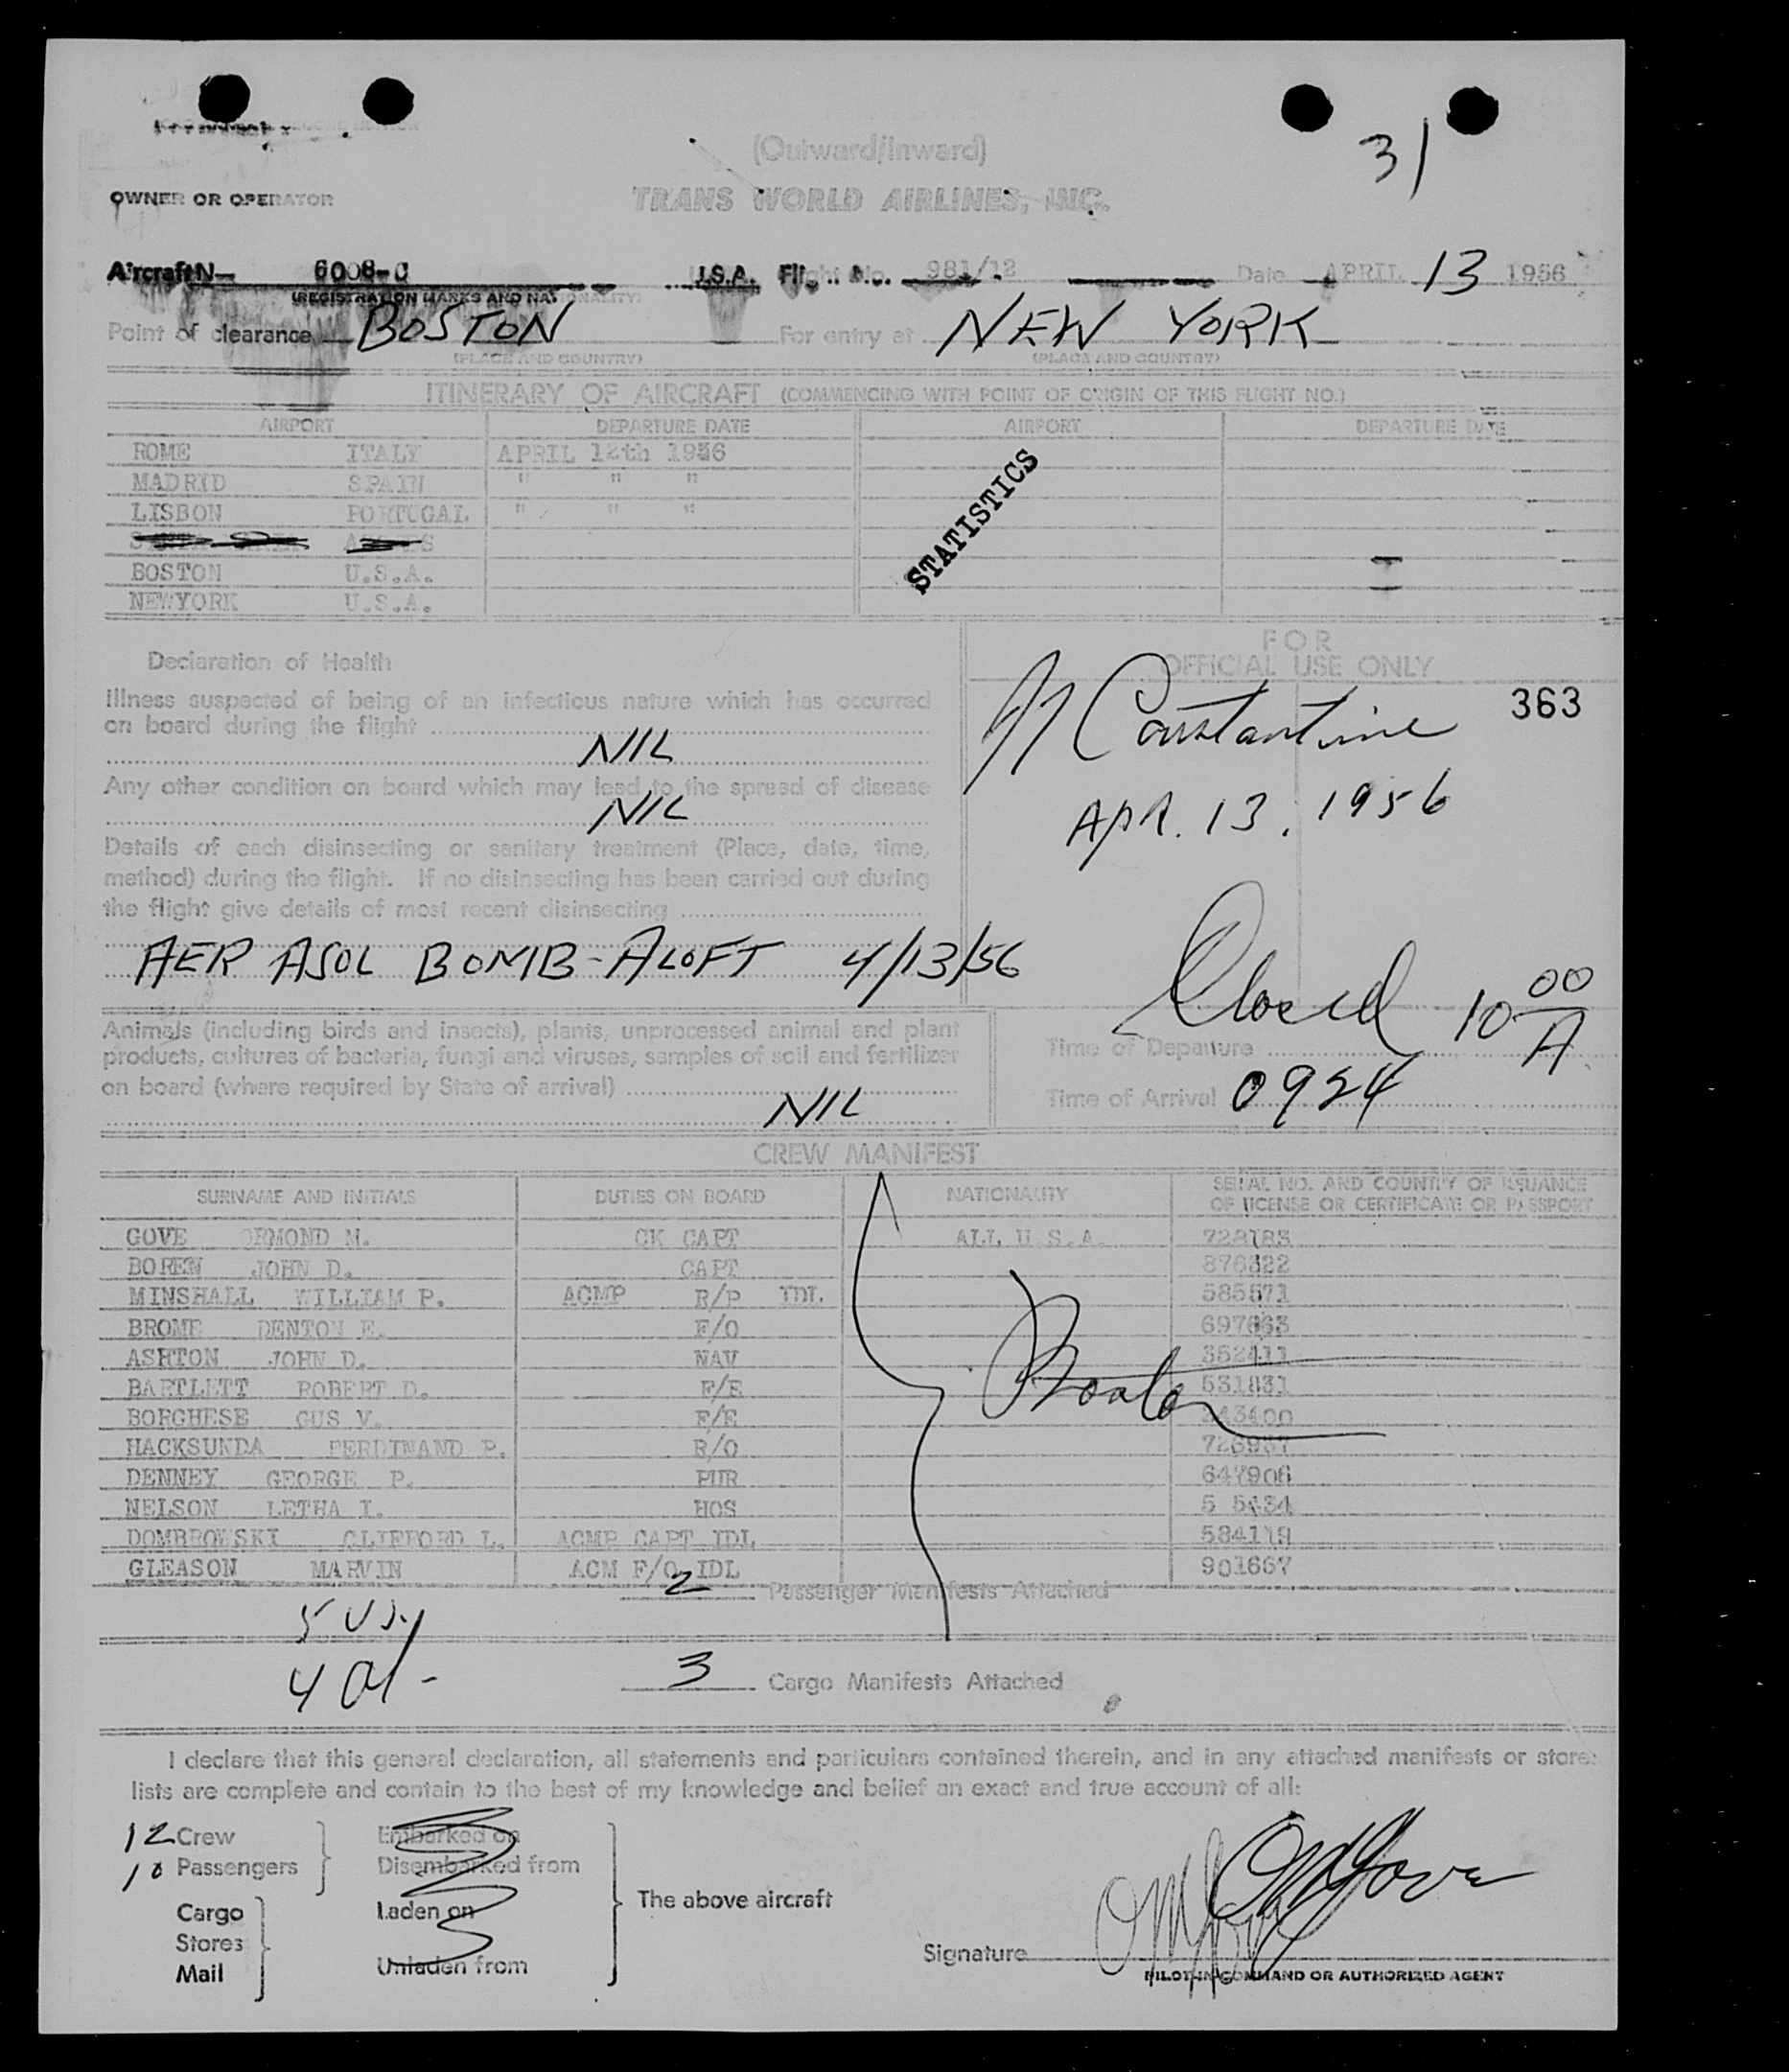 31
(Outward/Inward)
OWNER OR OPERATOR TRANS WORLD AIRLINES, INC.
Aircraft N- 6008-C U.S.A. Flight No. 981/12 Date APRIL 13 1956
(REGISTRATION MARKS AND NATIONALITY)
Point of clearance BOSTON For entry at NEW YORK
(PLACE AND COUNTRY) (PLACE AND COUNTRY)
ITINERARY OF AIRCRAFT (COMMENCING WITH POINT OF ORIGIN OF THIS FLIGHT NO.)
AIRPORT DEPARTURE DATE AIRPORT DEPARTURE DATE
ROME ITALY APRIL 12th 1956
MADRID SPAIN " " "
LISBON PORTUGAL " " "
BOSTON U.S.A.
NEWYORK U.S.A.
STATISTICS
Declaration of Health
Illness suspected of being of an infectious nature which has occurred
on board during the flight
NIL
Any other condition on board which may lead to the spread of disease
NIL
Details of each disinsecting or sanitary treatment (Place, date, time,
method) during the flight. If no disinsecting has been carried out during
the flight give details of most recent disinsecting
AER ASOL BOMB - ALOFT 4/13/56
FOR
OFFICIAL USE ONLY
363
N Constantine
APR. 13, 1956
Closed 10 00 A
Animals (including birds and insects), plants, unprocessed animal and plant
products, cultures of bacteria, fungi and viruses, samples of soil and fertilizer
on board (where required by State of arrival)
NIL
Time of Departure
Time of Arrival 0924
CREW MANIFEST
SURNAME AND INITIALS DUTIES ON BOARD NATIONALITY SERIAL NO. AND COUNTRY OF ISSUANCE
OF LICENSE OR CERTIFICATE OR PASSPORT
GOVE ORMOND M. CK CAPT ALL U.S.A. 728183
BOREN JOHN D. CAPT 876322
MINSHALL WILLIAM P. ACMP R/P IDL 585571
BROME DENTON E. F/O 697663
ASHTON JOHN D. NAV 352411
BARTLETT ROBERT D. F/E 531831
BORGHESE GUS V. F/E
HACKSUNDA FERDINAND P. R/O
DENNEY GEORGE P. PUR 647906
NELSON LETHA I. HOS
DOMBROWSKI CLIFFORD L. ACMP CAPT IDL 584119
GLEASON MARVIN ACM F/O IDL 901667
2 Passenger Manifests Attached
3 Cargo Manifests Attached
I declare that this general declaration, all statements and particulars contained therein, and in any attached manifests or stores
lists are complete and contain to the best of my knowledge and belief an exact and true account of all:
12 Crew Embarked on
10 Passengers Disembarked from
The above aircraft
Cargo Laden on
Stores
Mail Unladen from
Signature OMGove
PILOT-IN-COMMAND OR AUTHORIZED AGENT